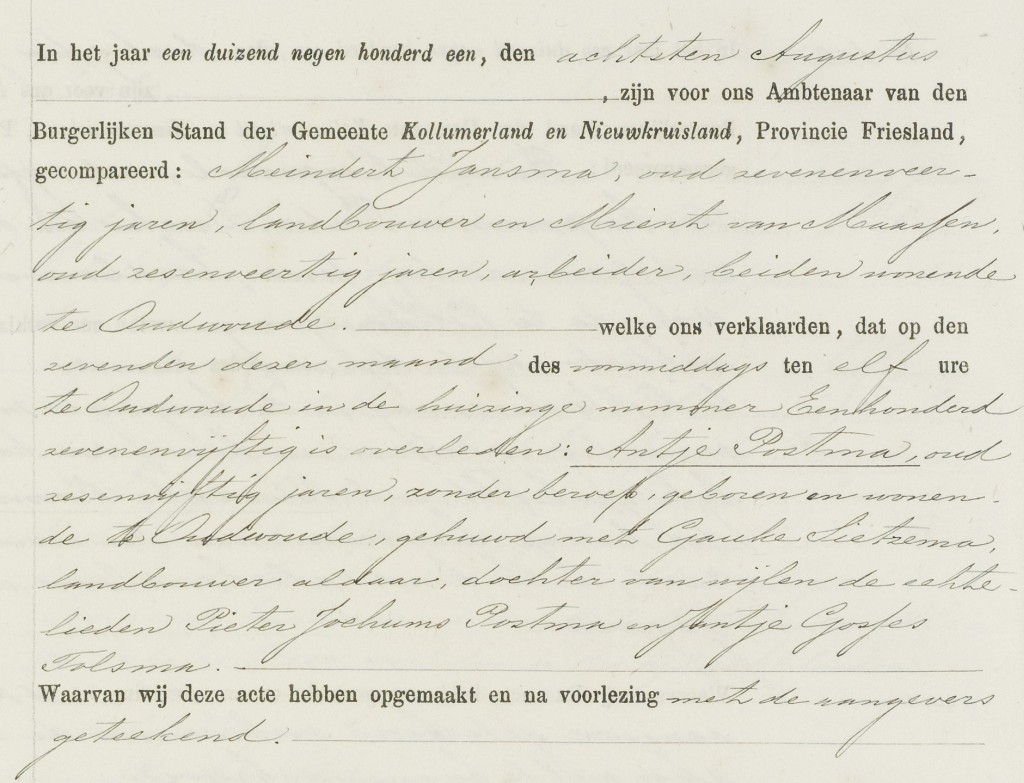 In het jaar een duizend negen honderd een, den achtsten Augustus
, zijn voor ons Ambtenaar van den
Burgerlijken Stand der Gemeente Kollumerland en Nieuwkruisland, Provincie Friesland,
gecompareerd: Meindert Jansma, oud zevenenveer-
tig jaren, landbouwer en Mient van Maassen,
oud zesenveertig jaren, arbeider, beiden wonende
te Oudwoude. welke ons verklaarden, dat op den
zevenden dezer maand des voormiddags ten elf ure
te Oudwoude in de huizinge nummer Eenhonderd
zevenenvijftig is overleden: Antje Postma, oud
zesenvijftig jaren, zonder beroep, geboren en wonen-
de te Oudwoude, gehuwd met Gauke Sietzema,
landbouwer aldaar, dochter van wijlen de echte-
lieden Pieter Jochums Postma en Jantje Gosses
Tolsma.
Waarvan wij deze acte hebben opgemaakt en na voorlezing met de aangevers
geteekend.